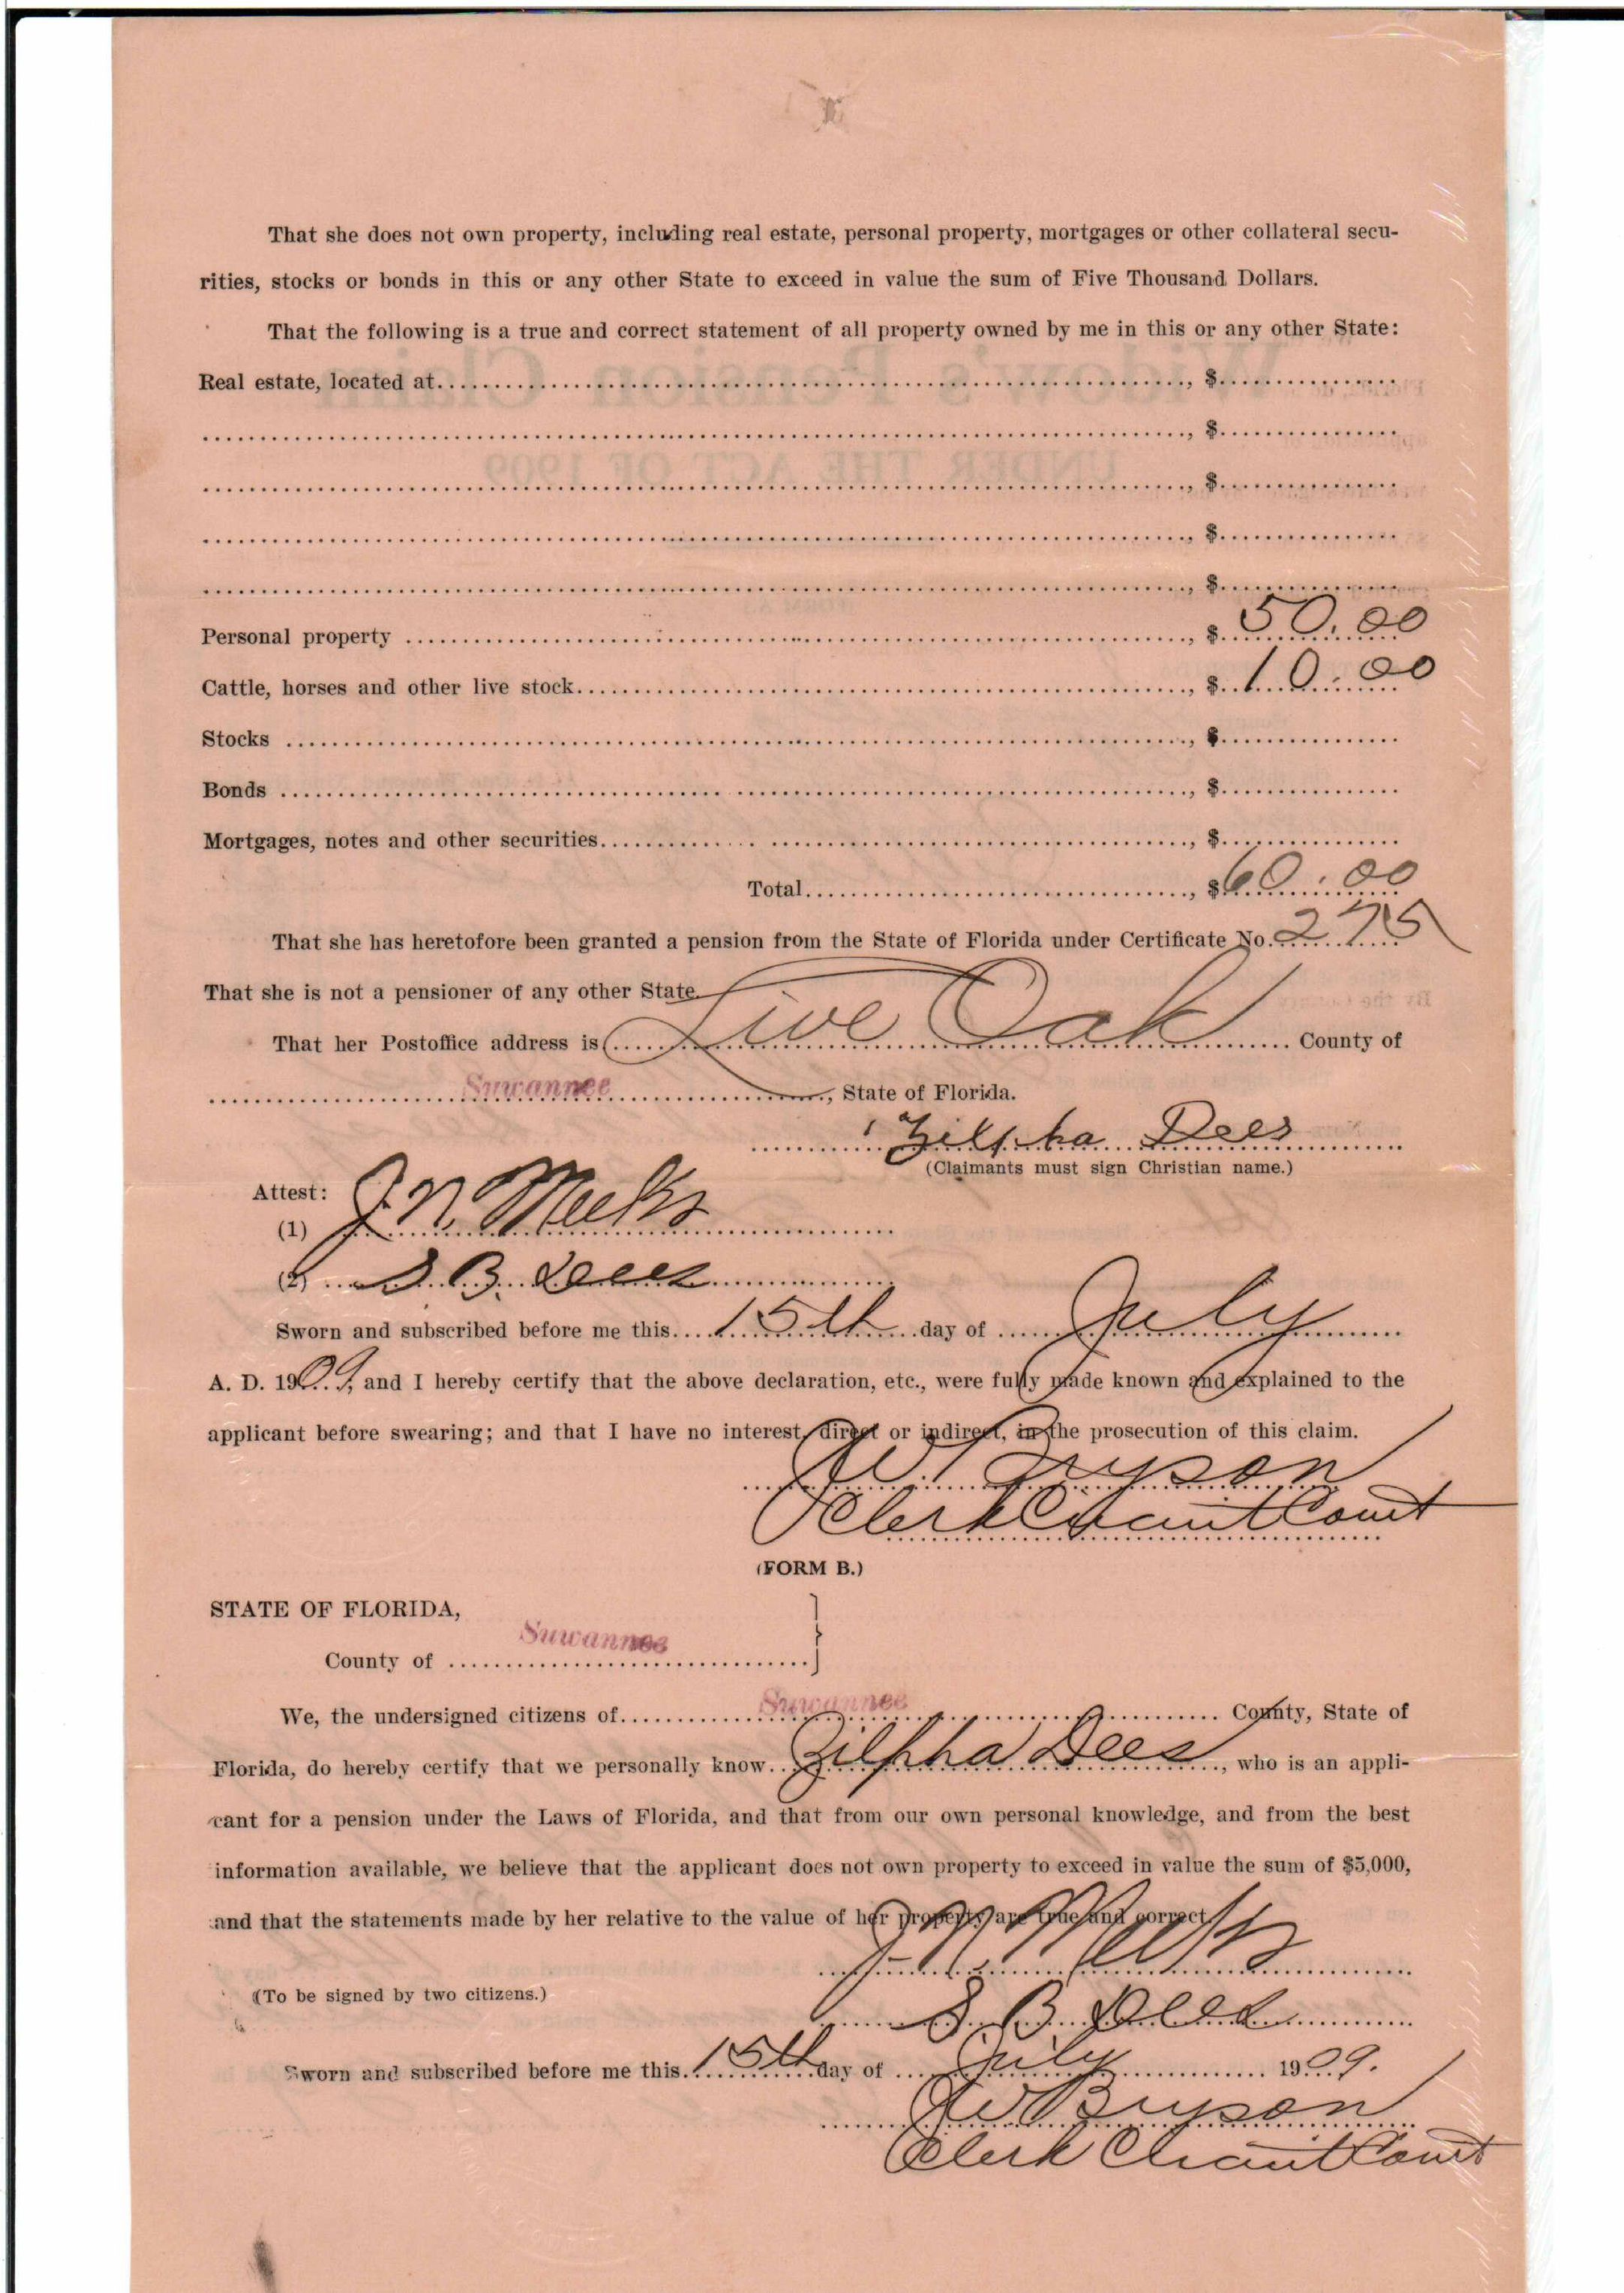 That she does not own property, including real estate, personal property, mortgages or other collateral secu-
rities, stocks or bonds in this or any other State to exceed in value the sum of Five Thousand Dollars.
That the following is a true and correct statement of all property owned by me in this or any other State:
Real estate, located at , $
, $
, $
, $
, $
Personal property , $ 50.00
Cattle, horses and other live stock , $ 10.00
Stocks , $
Bonds , $
Mortgages, notes and other securities , $
Total , $ 60.00
That she has heretofore been granted a pension from the State of Florida under Certificate No. 275
That she is not a pensioner of any other State.
That her Postoffice address is Live Oak County of
Suwannee , State of Florida.
Zilpha Dees
(Claimants must sign Christian name.)
Attest:
(1) J. N. Meeks
(2) S. B. Dees
Sworn and subscribed before me this 15th day of July
A. D. 1909, and I hereby certify that the above declaration, etc., were fully made known and explained to the
applicant before swearing; and that I have no interest, direct or indirect, in the prosecution of this claim.
J W Bryson
Clerk Circuit Court
(FORM B.)
STATE OF FLORIDA,
County of Suwannee
We, the undersigned citizens of Suwannee County, State of
Florida, do hereby certify that we personally know Zilpha Dees, who is an appli-
cant for a pension under the Laws of Florida, and that from our own personal knowledge, and from the best
information available, we believe that the applicant does not own property to exceed in value the sum of $5,000,
and that the statements made by her relative to the value of her property are true and correct.
J. N. Meeks
(To be signed by two citizens.)
S B Dees
Sworn and subscribed before me this 15th day of July 1909.
J W Bryson
Clerk Circuit Court